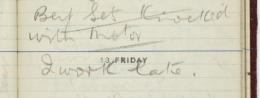 Bert Get Knocked
with Motor
13 FRIDAY
I work late.